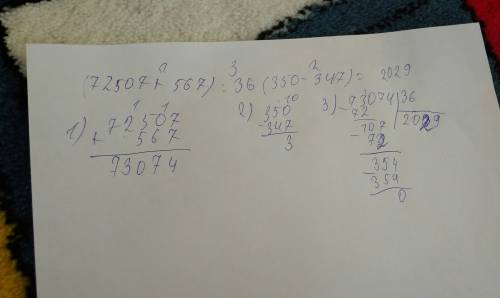 (72507 + 567) : 36 (350 - 347) = 2029
1 3 2
1) 72507 + 567 = 73074
2) 350 - 347 = 3
3) 73074 | 36
- 72 | 2029
107
- 72
354
- 354
0